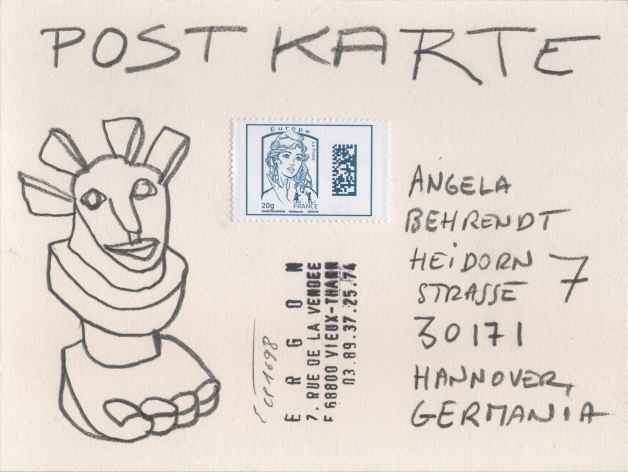 POSTKARTE
Europe
20g
FRANCE
ANGELA
BEHRENDT
HEIDORN 7
STRASSE
30171
HANNOVER,
GERMANIA
ERGON
7. RUE DE LA VENDEE
F 68800 VIEUX-THANN
03.89.37.25.74